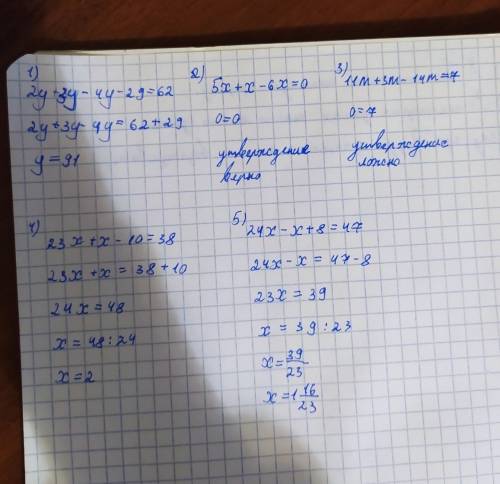 1)
2y+3y-4y-29=62
2y+3y-4y=62+29
y=91
2)
5x+x-6x=0
0=0
утверждение
верно
3)
11m+3m-14m=7
0=7
утверждение
ложно
4)
23x+x-10=38
23x+x=38+10
24x=48
x=48:24
x=2
5)
24x-x+8=47
24x-x=47-8
23x=39
x=39:23
x=39/23
x=1 16/23